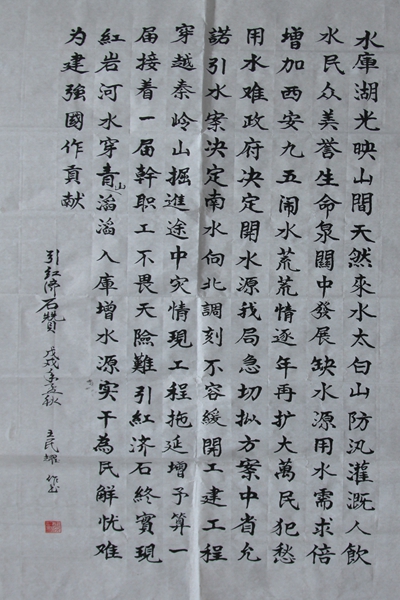 水庫湖光映山間天然來水太白山防汛灌溉人飲
水民众美誉生命泉關中發展缺水源用水需求倍
增加西安九五闹水荒荒情逐年再扩大萬民犯愁
用水难政府决定開水源我局急切拟方案中省允
諾引水案决定南水向北調刻不容緩開工建工程
穿越秦岭山掘進途中灾情現工程拖延增予算一
届接着一届幹职工不畏天險難引紅济石終實現
紅岩河水穿青山滔滔入庫增水源实干為民解忧难
为建強國作貢献
引红济石赞 戊戌 王民耀 作